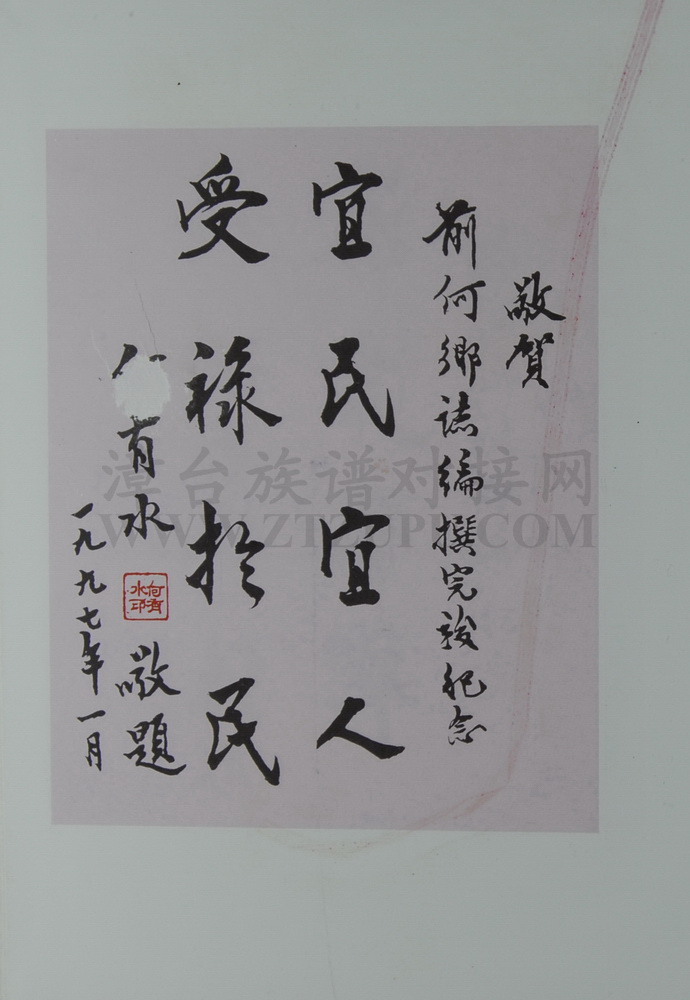 敬贺
前何鄉誌編撰完竣纪念
宜民宜人
受禄於民
有水
敬題
一九九七年一月
何有水印
漳台族谱对接网
WWW.ZTZUPU.COM